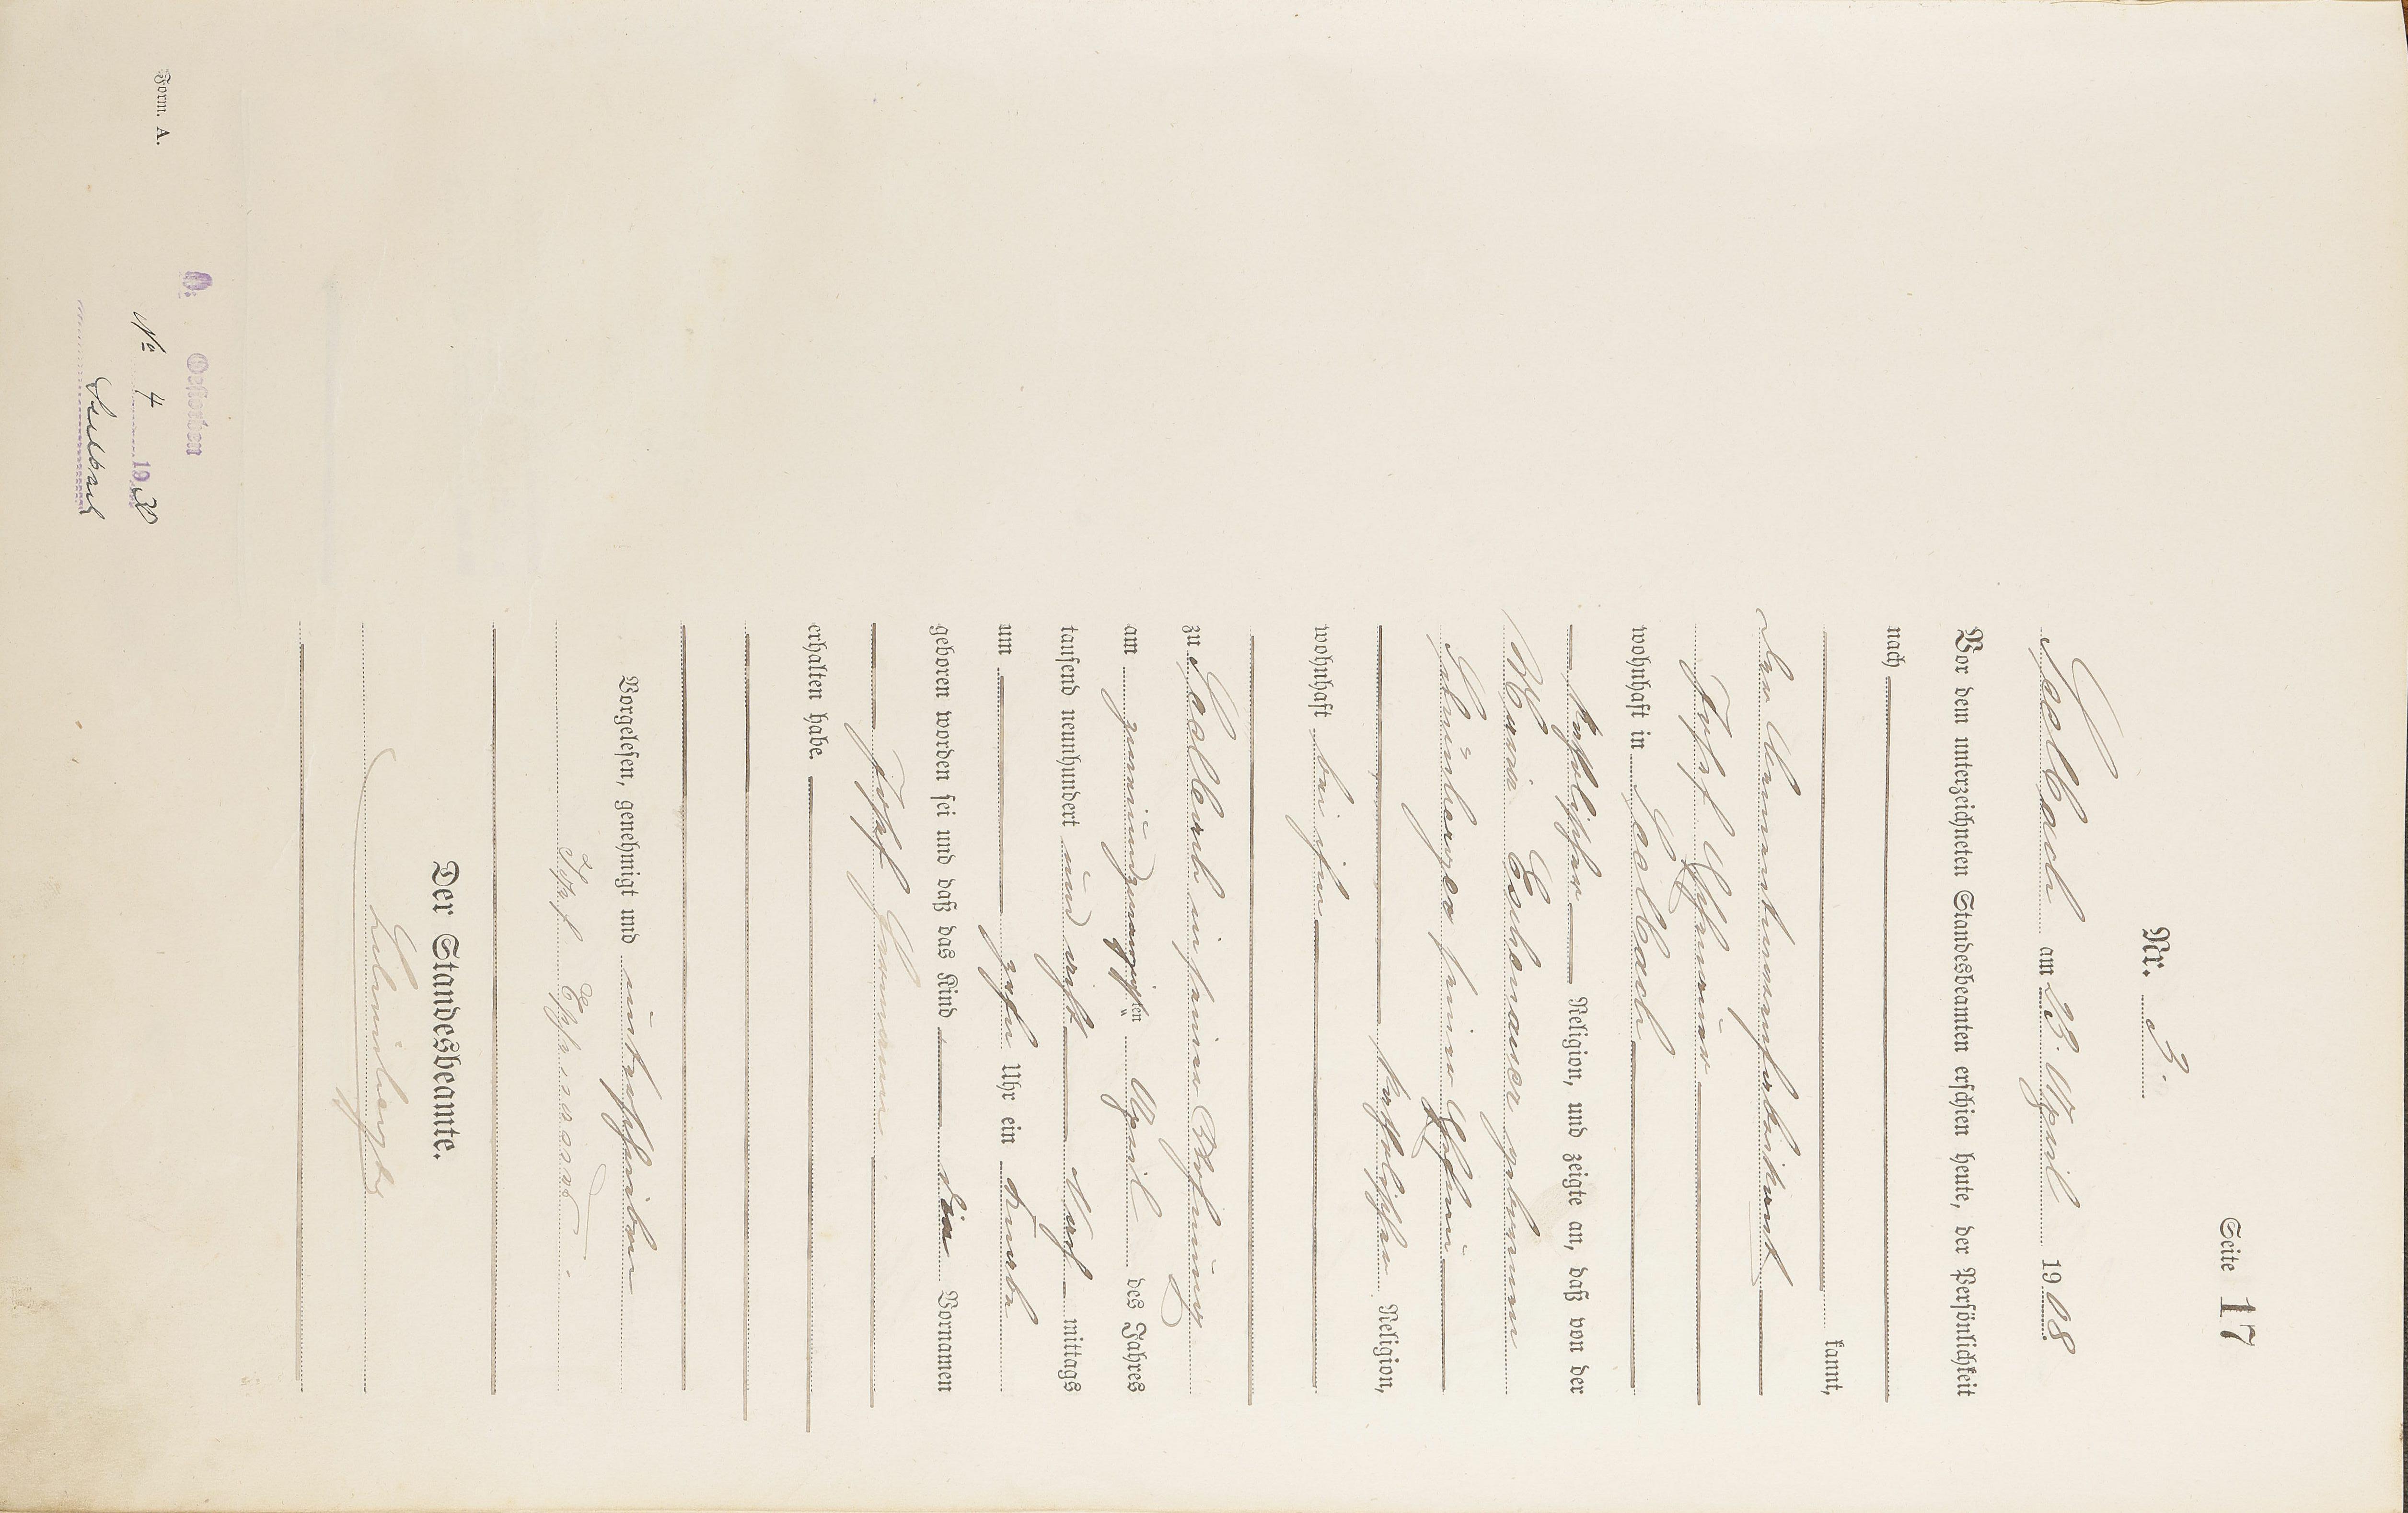 Seite 17
Nr. 3.
Seelbach am 23. April 1908
Vor dem unterzeichneten Standesbeamten erschien heute, der Persönlichkeit
nach
kannt,
der
Josef
wohnhaft in Seelbach
katholischer Religion, und zeigte an, daß von der
Marie Eschenauer geborenen
seiner Ehefrau
katholischer Religion,
wohnhaft bei ihm
zu Seelbach in seiner Wohnung
am zweiundzwanzigsten April des Jahres
tausend neunhundert und acht Nachmittags
um zehn Uhr ein Knabe
geboren worden sei und daß das Kind die Vornamen
Josef Hermann
erhalten habe.
Vorgelesen, genehmigt und unterschrieben
Josef
Der Standesbeamte.
Form. A.
Gestorben
№ 4 1930
Seelbach